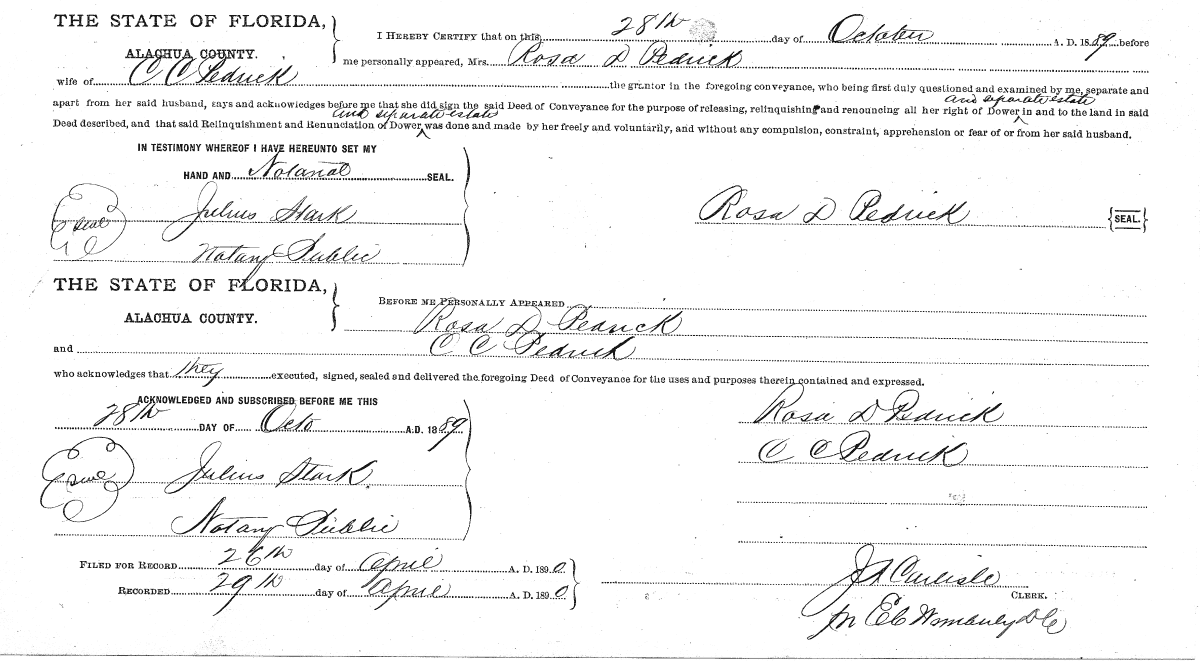 THE STATE OF FLORIDA,
ALACHUA COUNTY.
I HEREBY CERTIFY that on this 28th day of October A. D. 1889 before
me personally appeared, Mrs. Rosa D Pedrick
wife of C C Pedrick the grantor in the foregoing conveyance, who being first duly questioned and examined by me, separate and
and separate estate
apart from her said husband, says and acknowledges before me that she did sign the said Deed of Conveyance for the purpose of releasing, relinquishing and renouncing all her right of Dower in and to the land in said
and separate estate
Deed described, and that said Relinquishment and Renunciation of Dower was done and made by her freely and voluntarily, and without any compulsion, constraint, apprehension or fear of or from her said husband.
IN TESTIMONY WHEREOF I HAVE HEREUNTO SET MY
HAND AND Notarial SEAL.
Seal Julius Stark
Notary Public
Rosa D Pedrick {SEAL.}
THE STATE OF FLORIDA,
ALACHUA COUNTY.
BEFORE ME PERSONALLY APPEARED
Rosa D Pedrick
and C C Pedrick
who acknowledges that they executed, signed, sealed and delivered the foregoing Deed of Conveyance for the uses and purposes therein contained and expressed.
ACKNOWLEDGED AND SUBSCRIBED BEFORE ME THIS
28th DAY OF Octo A.D. 1889
Seal Julius Stark
Notary Public
Rosa D Pedrick
C C Pedrick
FILED FOR RECORD 26th day of April A. D. 1890
RECORDED 29th day of April A. D. 1890
J A Carlisle
CLERK.
pr E C Wimberly D C